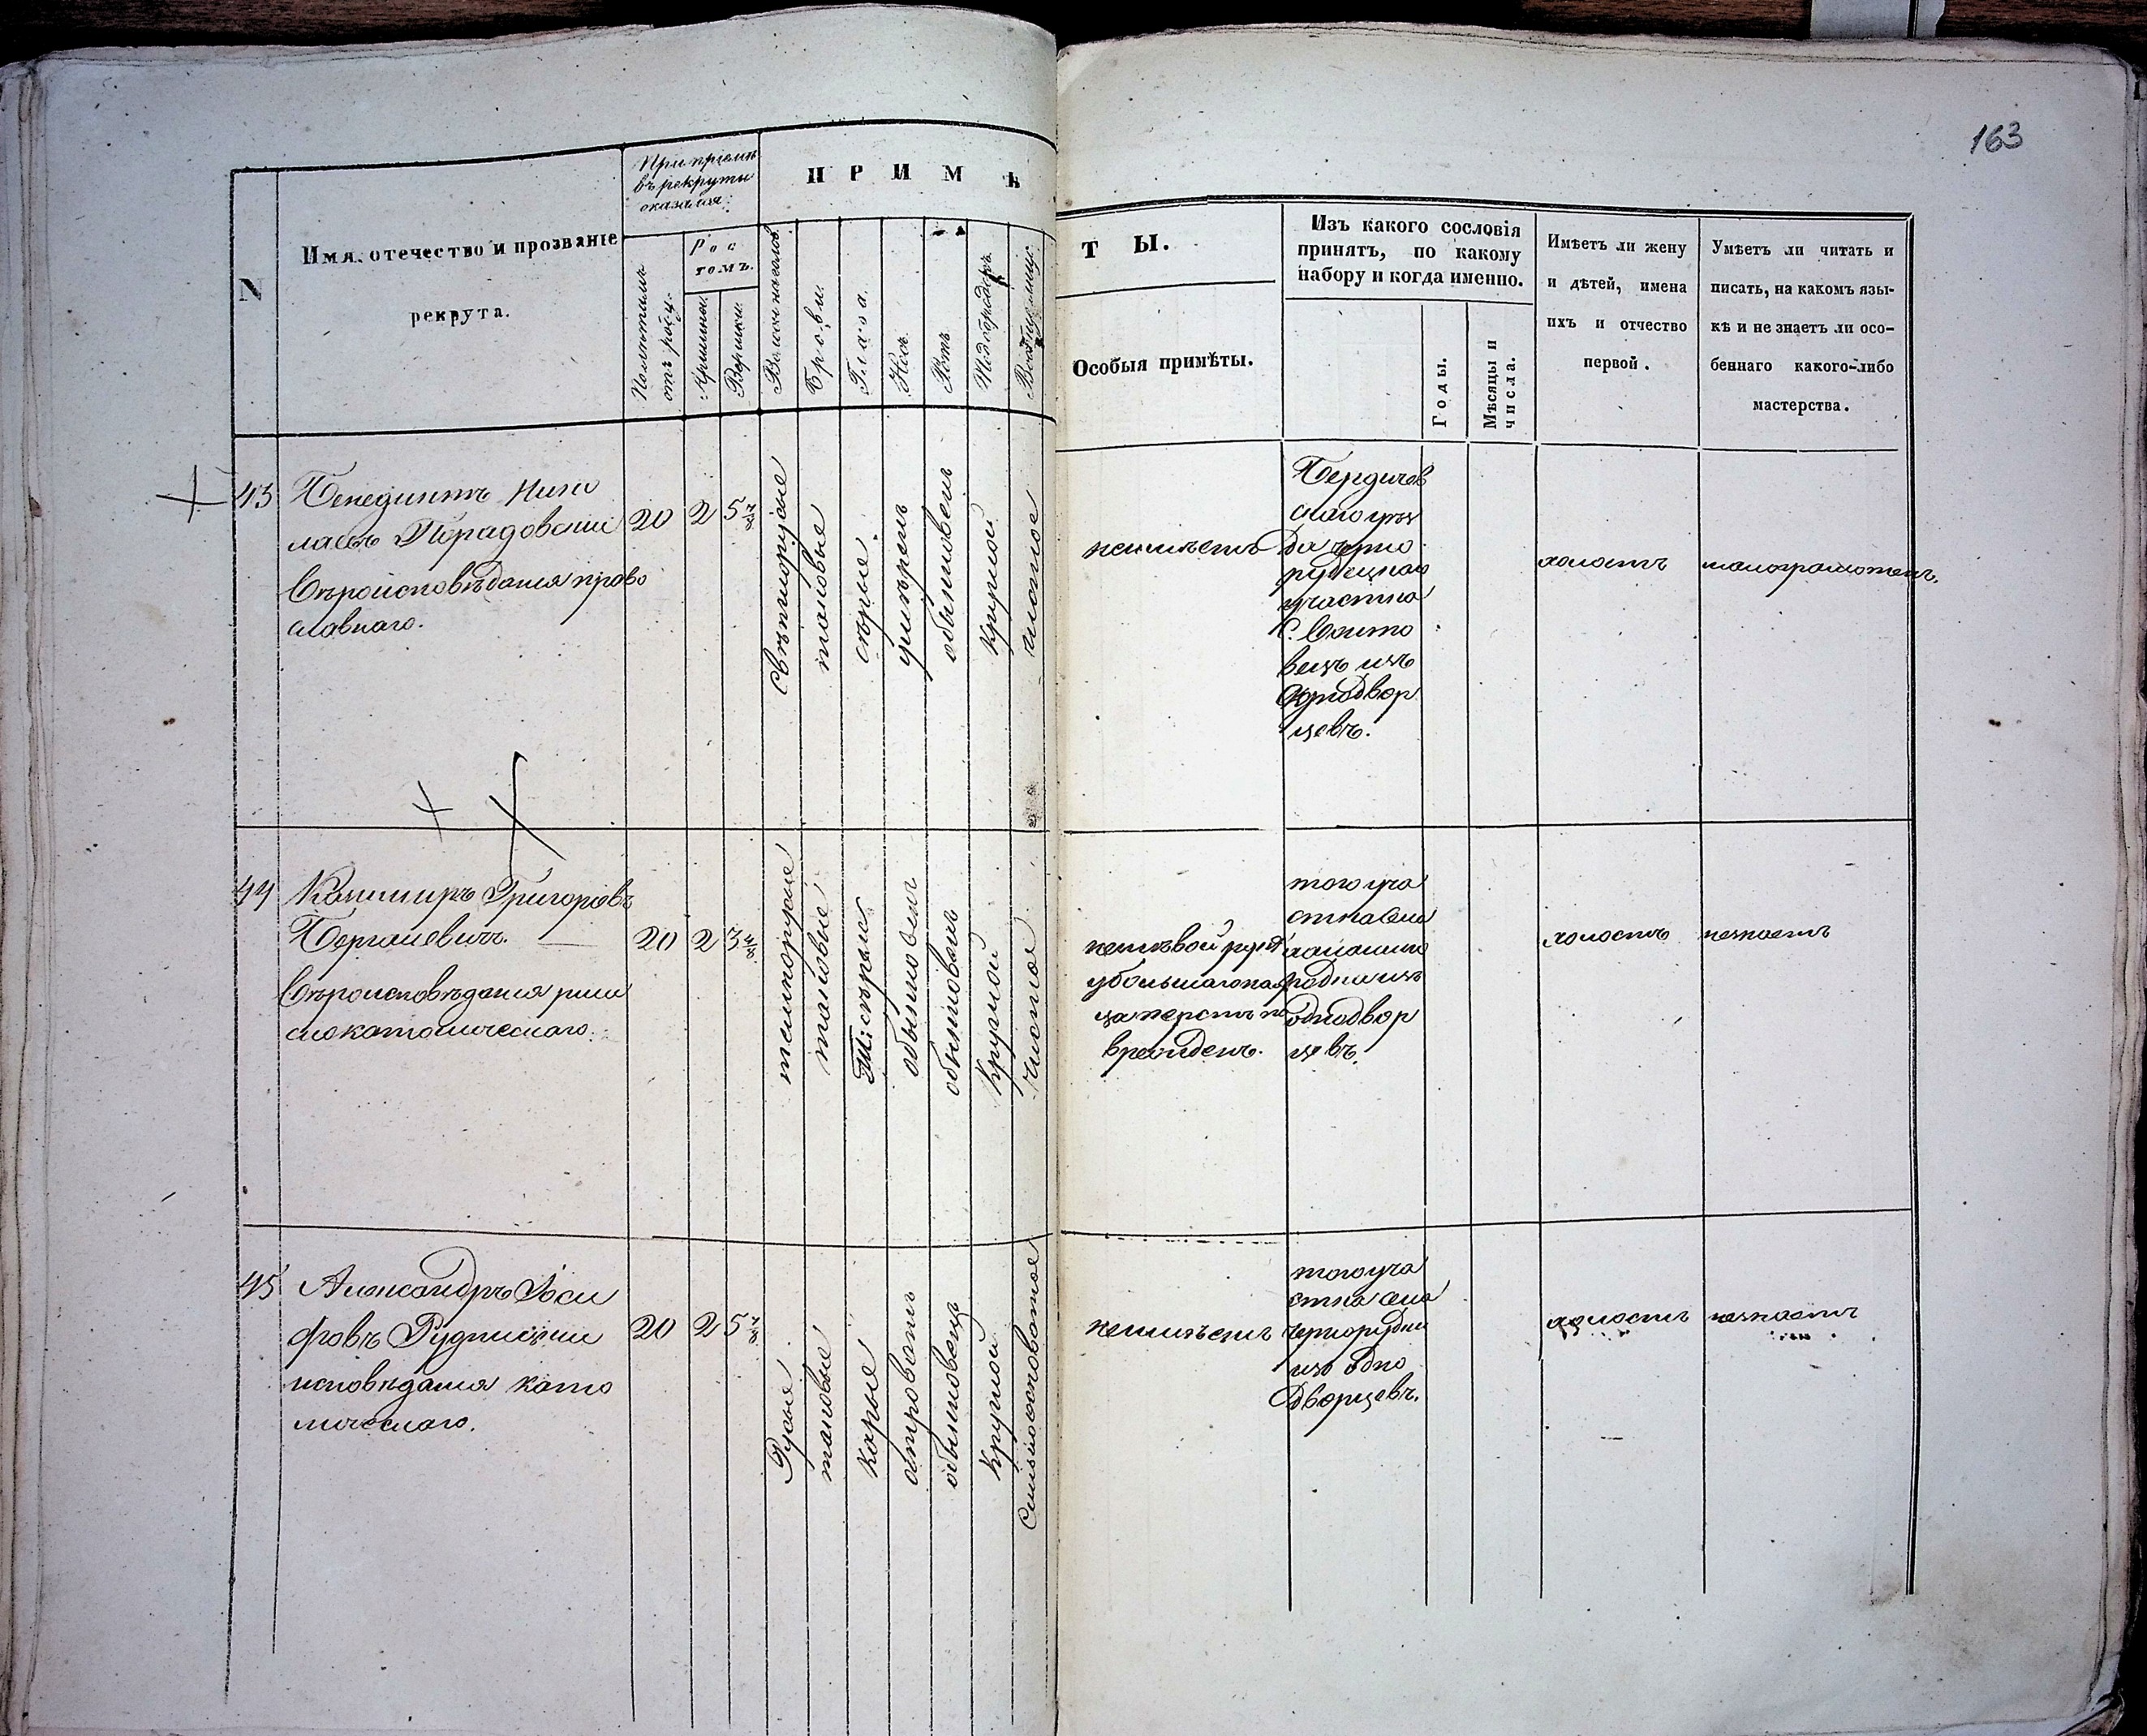 163
N
Имя, отечество и прозваніе
рекрута.
При пріемѣ
въ рекруты
оказался:
Полнтамъ
отъ роду.
Ростомъ.
Аршины.
Вершки.
ПРИМѢ
Волосы на голов.
Брови.
Глаза.
Носъ.
Ротъ.
Подбородокъ.
ТЫ.
Особыя примѣты.
Изъ какого сословія
принятъ, по какому
набору и когда именно.
Годы.
Мѣсяцы и
числа.
Имѣетъ ли жену
и дѣтей, имена
ихъ и отчество
первой.
Умѣетъ ли читать и
писать, на какомъ язы-
кѣ и не знаетъ ли осо-
беннаго какого-либо
мастерства.
43
Бенедиктъ Нико
лаевъ Порадовскій
вѣроисповѣданія право
славнаго.
20
2
5
свѣтлорусые
таковые
сѣрые
умѣренъ
обыкновенъ
круглой
чистое
неимѣетъ
Бердичев
скаго уѣз
да черно
рудецкаго
участка
с. Войто
вецъ изъ
однодвор
цевъ.
холостъ
малограмотенъ.
44
Казимиръ Григорьевъ
вѣроисповѣданія рим
скокатолическаго.
20
2
3 4/8
темнорусые
таковые
Т: сѣрые
обыкновен
обыкновенъ
круглой
чистое
на лѣвой рукѣ
у большаго пал
ца перстъ по
врежденъ.
того уча
стка села
родки изъ
однодвор
цевъ.
холостъ
незнаетъ
45
Александръ Іоси
фовъ Рудницкій
исповѣданія като
лическаго.
20
2
5
Русые
таковые
карые
островатъ
обыкновенъ
круглой
неимѣетъ
того уча
стка села
чернорудки
изъ одно
дворцевъ.
холостъ
незнаетъ